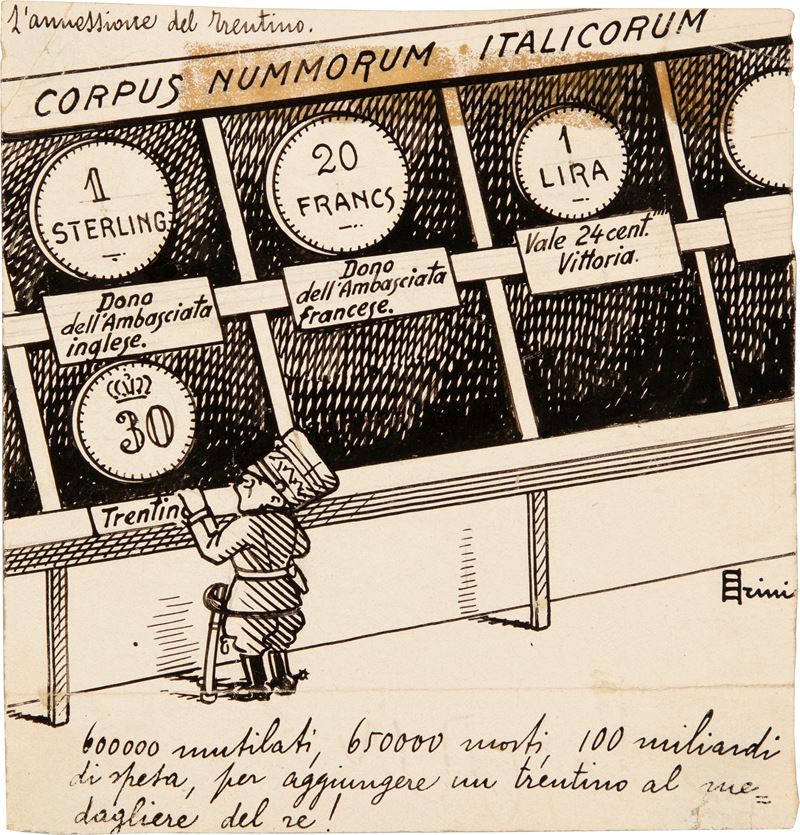 L'annessione del Trentino.
CORPUS NUMMORUM ITALICORUM
1
STERLING
20
FRANCS
1
LIRA
Dono
dell'Ambasciata
inglese.
Dono
dell'Ambasciata
francese.
Vale 24 cent.
Vittoria.
30
Trentino
600000 mutilati, 650000 morti, 100 miliardi
di spesa, per aggiungere un trentino al me=
dagliere del re!